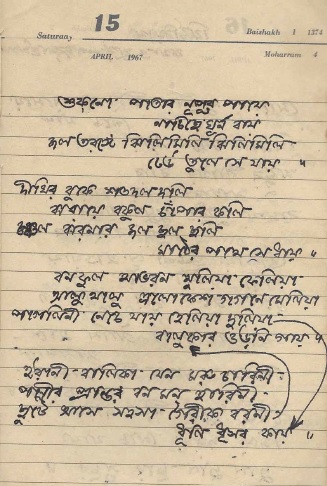 15
Saturday Baishakh 1 1374
APRIL 1967 Moharram 4
শুকনো পাতার নূপুর পায়ে
নাচিছে ঘূর্ণি বায়
জল তরঙ্গে ঝিলিমিলি ঝিলিমিলি
ঢেউ তুলে সে যায় ॥
দীঘির বুকে শতদল দলি
ঝরায়ে বকুল চাঁপার কলি
চঞ্চল ঝরনার জল ছল ছলি
মাঠের পথে সে ধায় ॥
বনফুল আভরণ খুলিয়া ফেলিয়া
আলু থালু এলোকেশ গগনে মেলিয়া
পাগলিনী নেচে যায় হেলিয়া দুলিয়া
বালুকার ওড়নি গায় ॥
ইরানী বালিকা যেন মরু চারিনী
পল্লীর প্রান্তর বন মন হারিনী
ছুটে আসে সহসা গৈরিক বরনী
ধূলি ধূসর কায় ॥